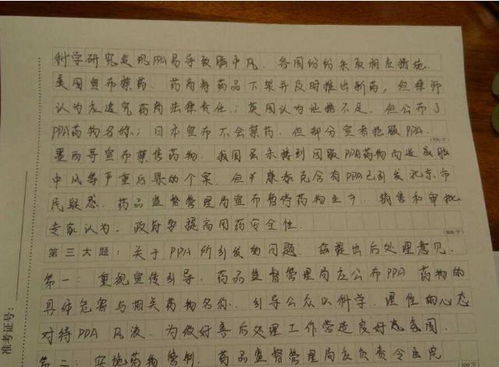 科学研究发现PPA易导致脑中风。各国纷纷采取相应措施。
美国宣布禁药。药商将药品下架并及时推出新药。但律师
认为应追究药商法律责任；英国认为证据不足，但公布了
PPA药物名称；日本宣布不会禁药，但部分患者拒服PPA；
墨西哥宣布禁售药物。我国虽未接到因服PPA药物而造成脑
中风等严重后果的个案，但康泰克含有PPA已引发北京市
民疑惑。药品监督管理局宣布暂停药物生产、销售和审批
专家认为，政府要提高用药安全性。
第三大题：关于PPA所引发的问题，兹提出后处理意见。
第一：重视宣传引导。药品监督管理局应公布PPA药物的
具体危害与相关药物名称，引导公众以科学、理性的心态
对待PPA风波，为做好善后处理工作营造良好氛围。
第二：实施药物管制。药品监督管理局应负责令医院
准考证号：